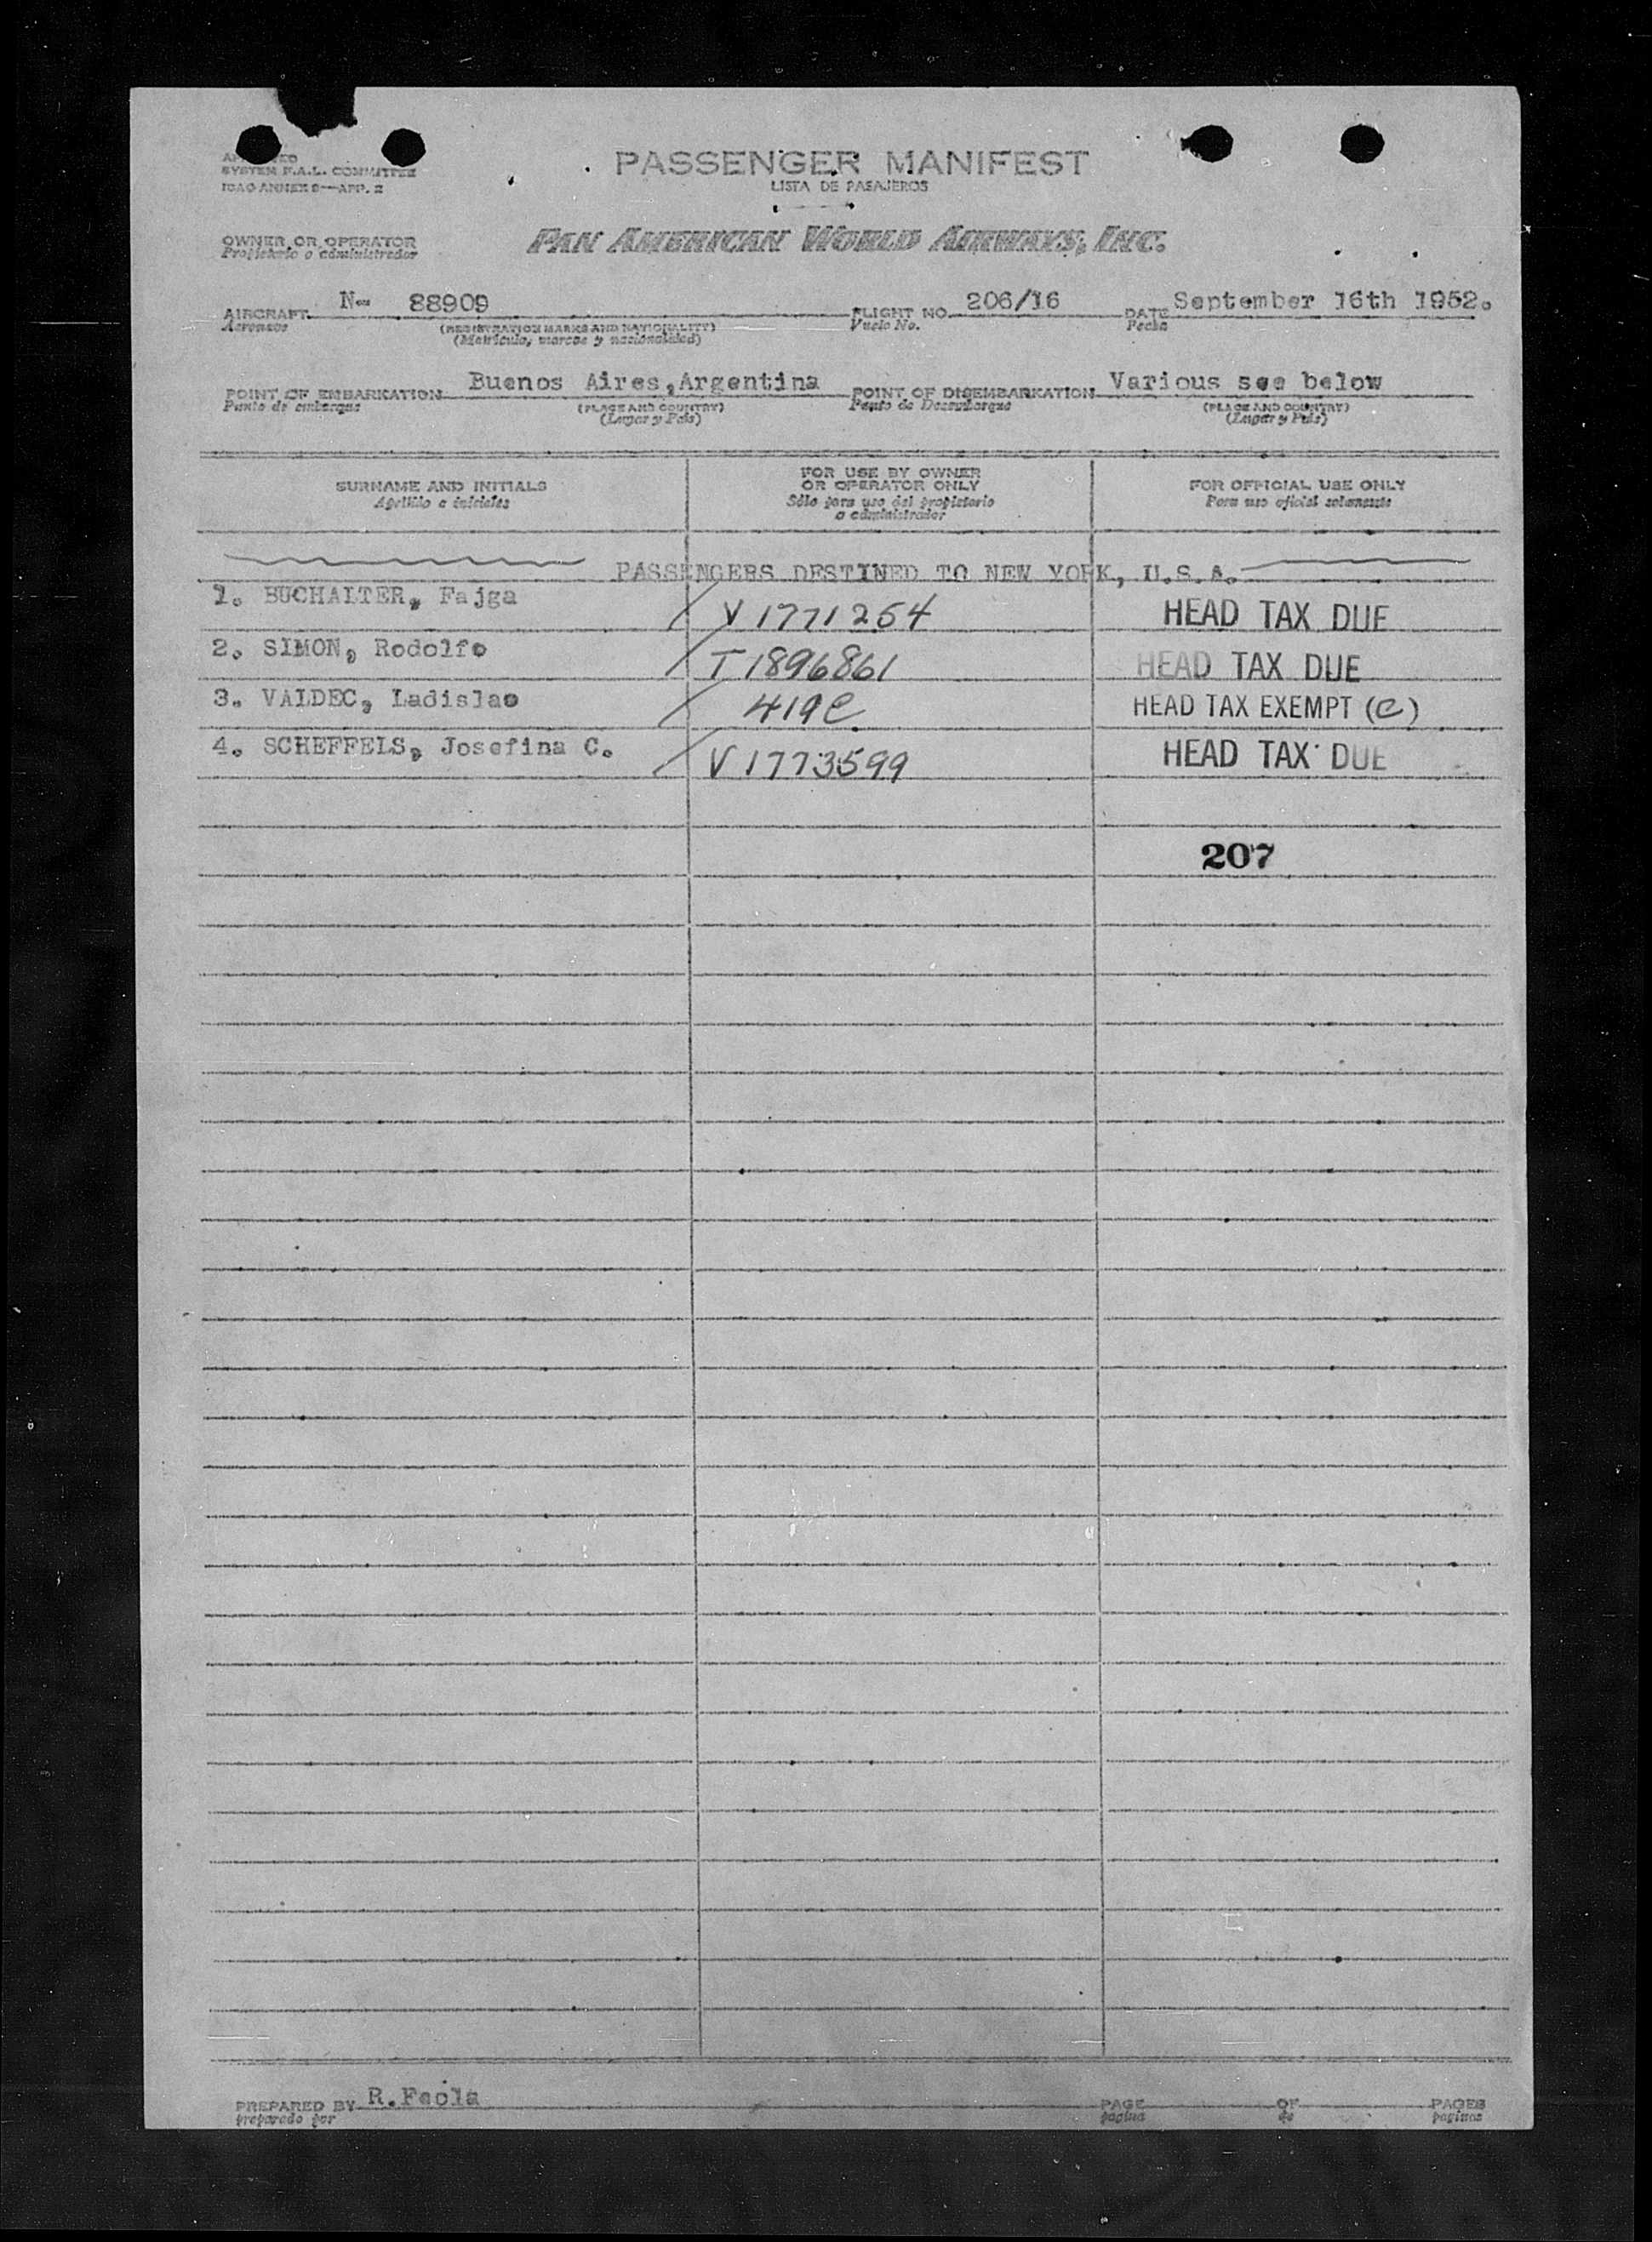 APPROVED
SYSTEM F.A.L. COMMITTEE
ICAO ANNEX 9—APP. 2
PASSENGER MANIFEST
LISTA DE PASAJEROS
OWNER OR OPERATOR
Propietario o administrador
PAN AMERICAN WORLD AIRWAYS, INC.
AIRCRAFT N- 88909
Aeronave
(REGISTRATION MARKS AND NATIONALITY)
(Matrícula, marcas y nacionalidad)
FLIGHT NO. 206/16
Vuelo No.
DATE September 16th 1952.
Fecha
POINT OF EMBARKATION Buenos Aires,Argentina
Punto de embarque
(PLACE AND COUNTRY)
(Lugar y País)
POINT OF DISEMBARKATION Various see below
Punto de Desembarque
(PLACE AND COUNTRY)
(Lugar y País)
SURNAME AND INITIALS
Apellido e iniciales
FOR USE BY OWNER
OR OPERATOR ONLY
Sólo para uso del propietario
o administrador
FOR OFFICIAL USE ONLY
Para uso oficial solamente
PASSENGERS DESTINED TO NEW YORK, U.S.A.
1. BUCHALTER, Fajga V 1771254 HEAD TAX DUE
2. SIMON, Rodolfo T 1896861 HEAD TAX DUE
3. VALDEC, Ladislao 419e HEAD TAX EXEMPT (e)
4. SCHEFFELS, Josefina C. V 1773599 HEAD TAX DUE
207
PREPARED BY R.Feola
preparado por
PAGE OF PAGES
página de páginas